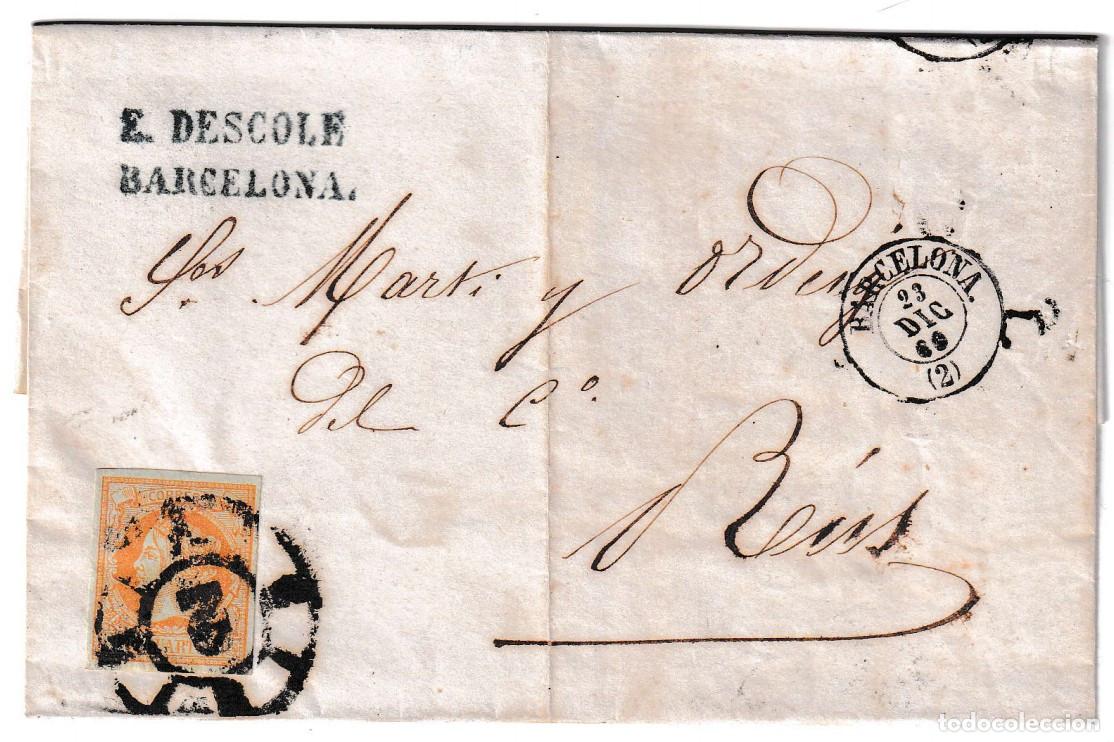 E. DESCOLE
BARCELONA.
Sres Marti y Ordeig
del Cº.
Réus
BARCELONA.
23
DIC
60
(2)
CORREOS
2
todocoleccion